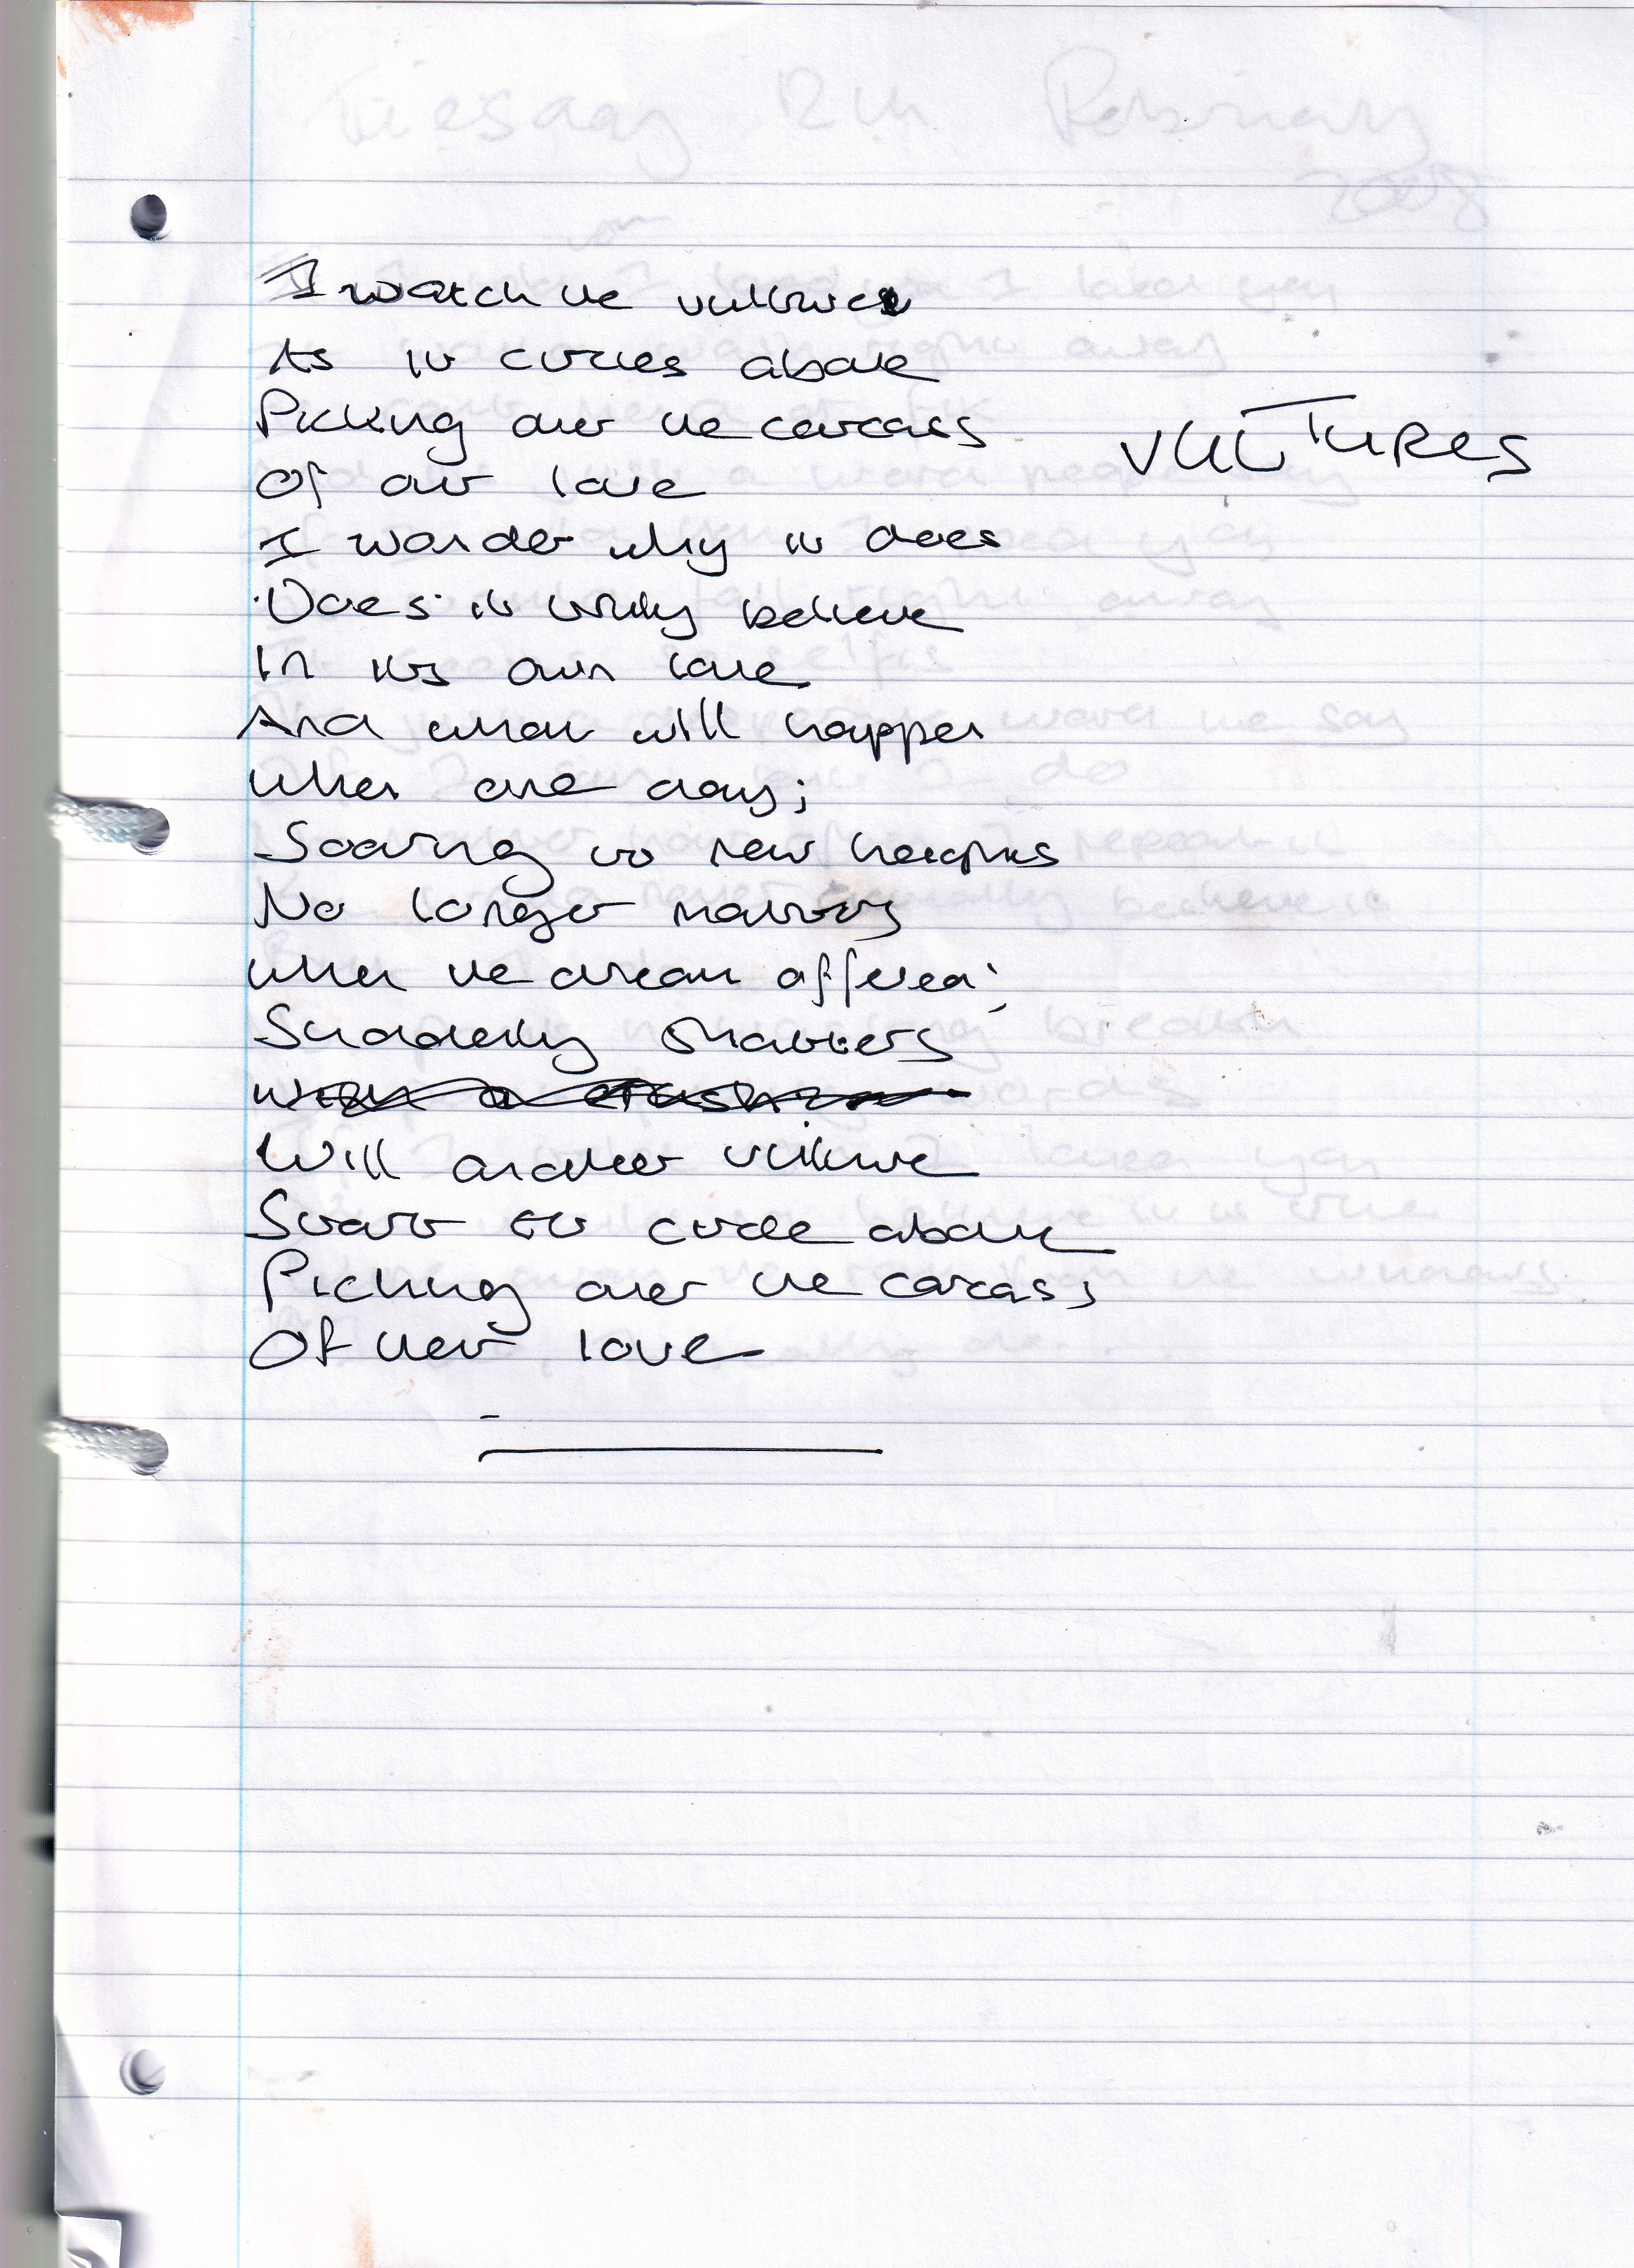 I watch the vulture
As it circles above
Picking over the carcass
VULTURES
Of our love
I wonder why it does
Does it truly believe
In its own love
And what will happen
When one day;
Soaring to new heights
No longer
When the dream offered;
Suddenly shatters
With a crash
Will another vulture
Start to circle above
Picking over the carcass
Of her love